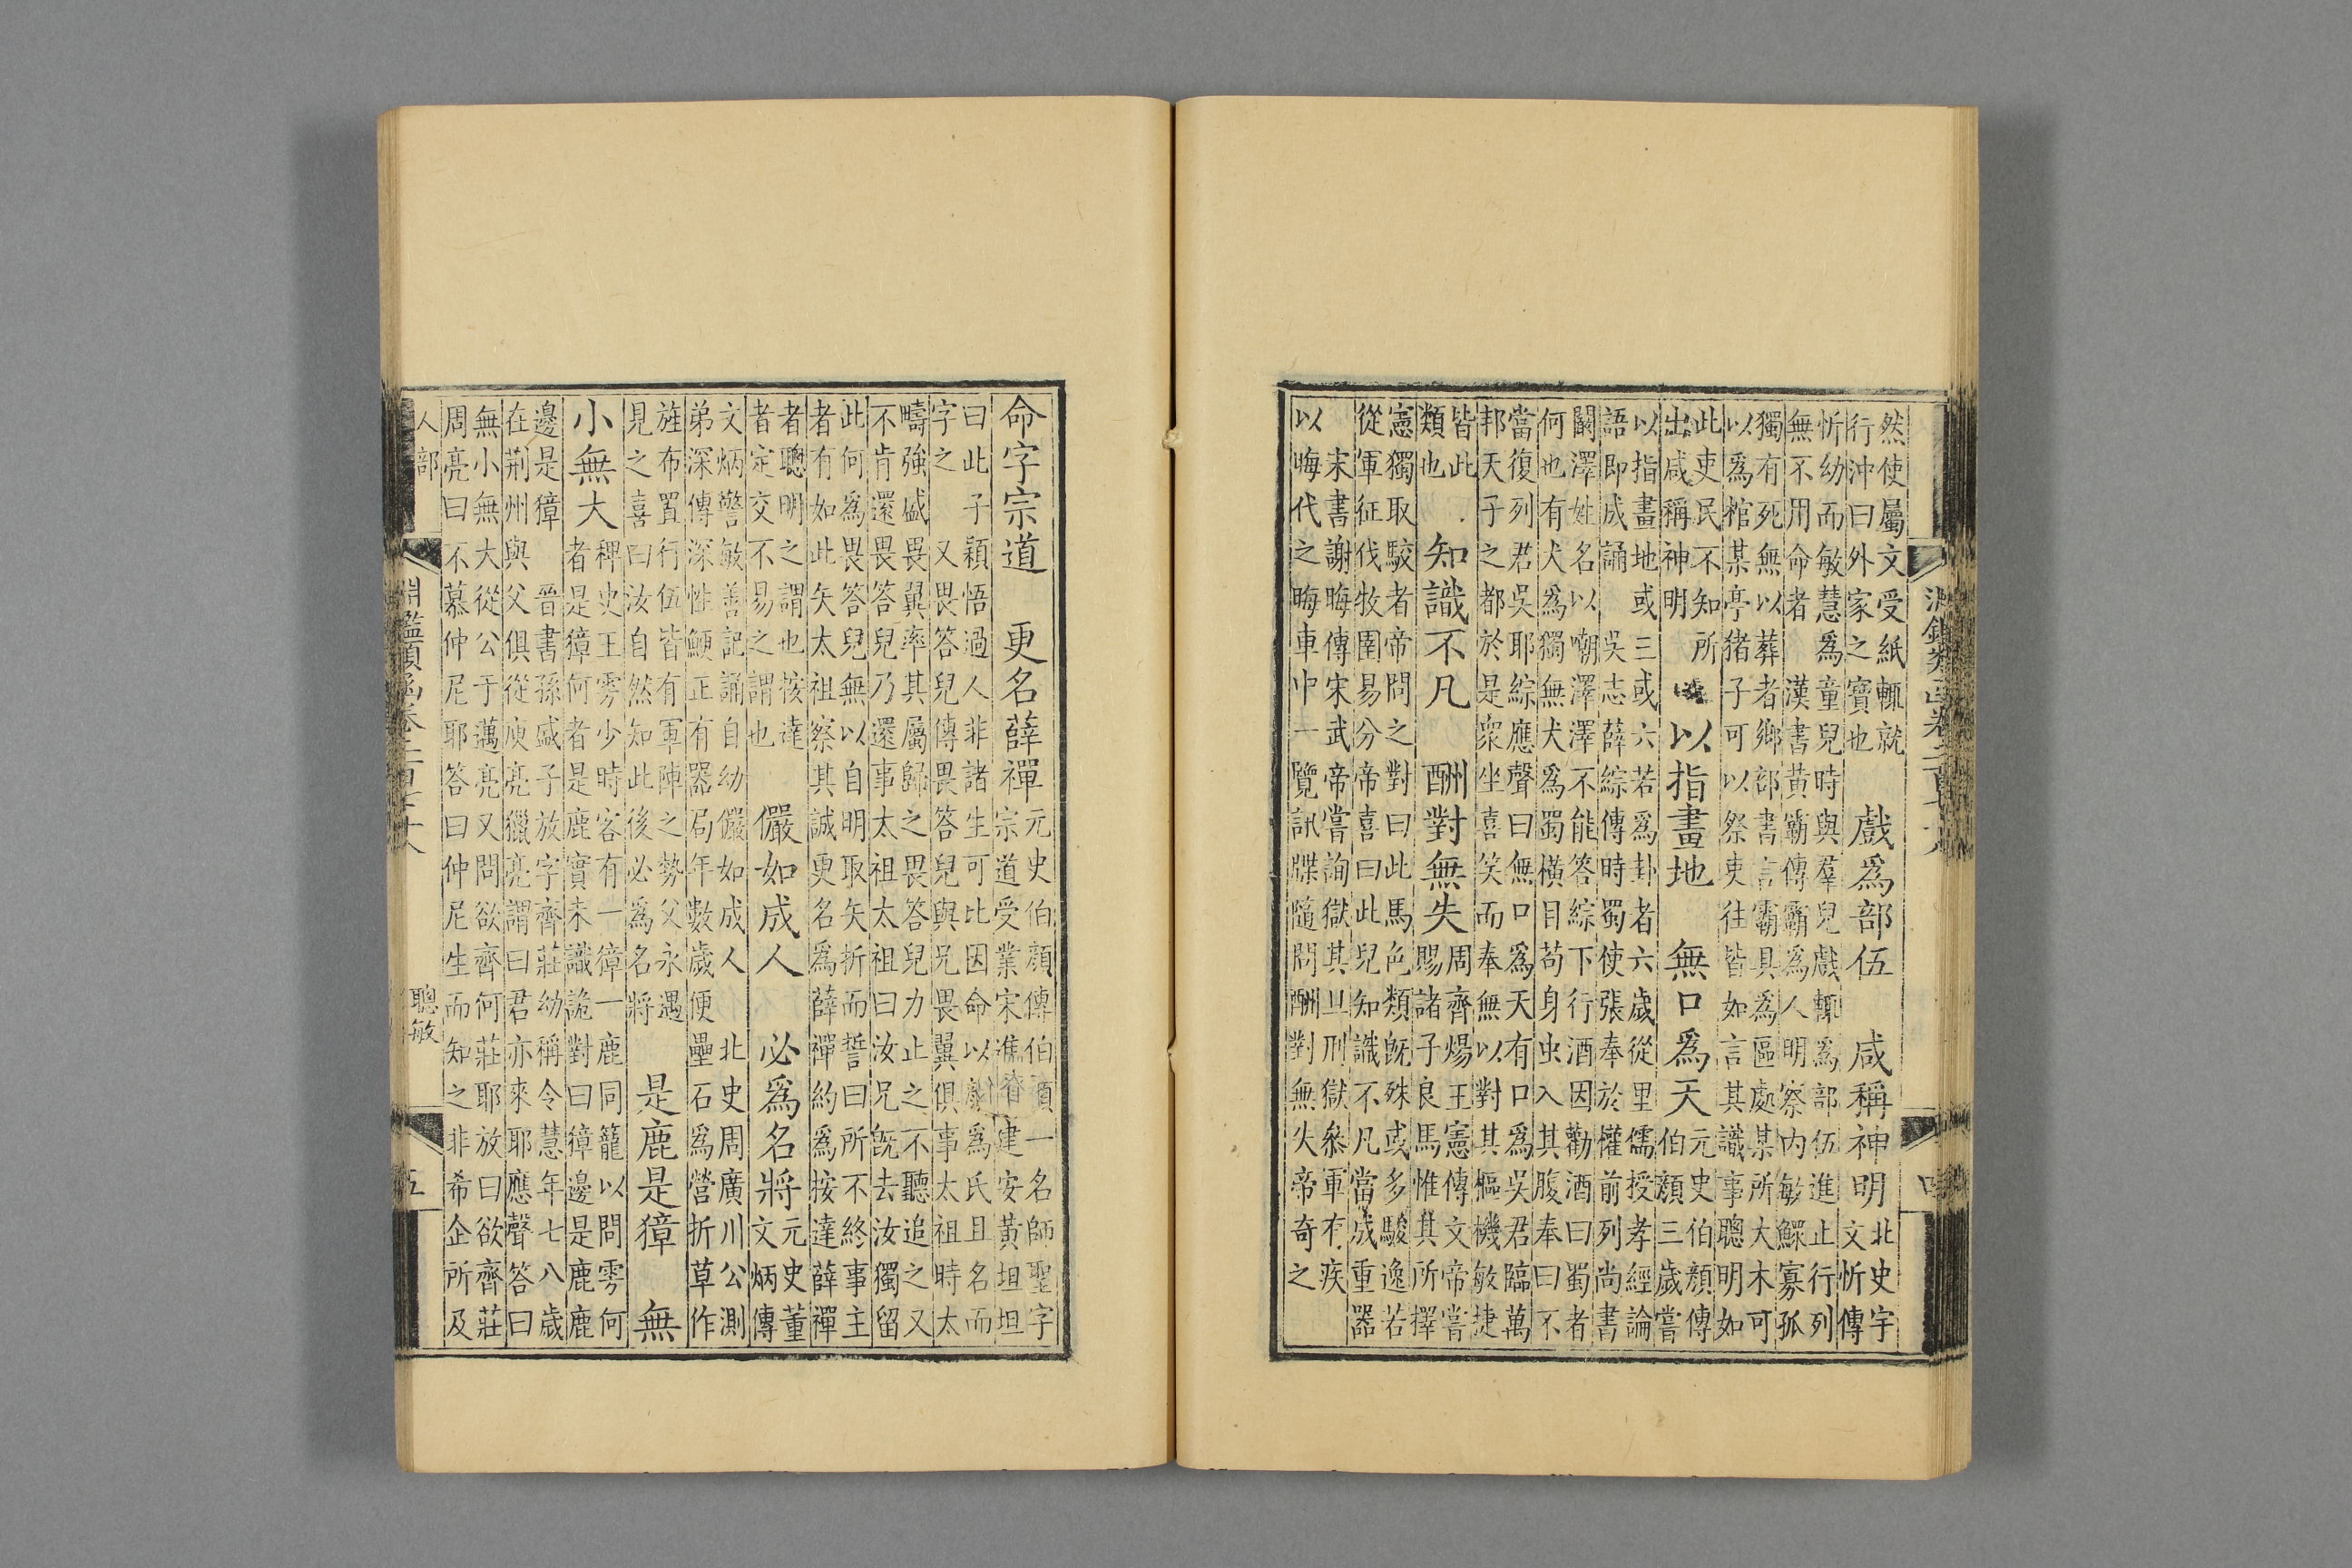 淵鑑類函卷二百七十八 四
然使屬文受紙輒就
行沖曰外家之寶也
戲爲部伍 咸稱神明
北史宇
文忻傳
忻幼而敏慧爲童兒時與羣兒戲輒爲部伍進止行列
無不用命者 漢書黃霸傳霸爲人明察内敏鰥寡孤
獨有死無以葬者鄉部書言霸具爲區處某所大木可
以爲棺某亭猪子可以祭吏往皆如言其識事聰明如
此吏民不知所
出咸稱神明
以指畫地 無口爲天
元史伯顏傳
伯顏三歲嘗
以指畫地或三或六若爲卦者六歲從里儒授孝經論
語即成誦 吳志薛綜傳時蜀使張奉於權前列尚書
闞澤姓名以嘲澤澤不能答綜下行酒因勸酒曰蜀者
何也有犬爲獨無犬爲蜀橫目苟身虫入其腹奉曰不
當復列君吳耶綜應聲曰無口爲天有口爲吳君臨萬
邦天子之都於是衆坐喜笑而奉無以對其樞機敏捷
皆此
類也
知識不凡 酬對無失
周齊煬王憲傳文帝嘗
賜諸子良馬惟其所擇
憲獨取駮者帝問之對曰此馬色類既殊或多駿逸若
從軍征伐牧圉易分帝喜曰此兒知識不凡當成重器
宋書謝晦傳宋武帝嘗詢獄其旦刑獄叅軍有疾
以晦代之晦車中一覽訊牒隨問酬對無失帝奇之
命字宗道 更名薛禪
元史伯顏傳伯顏一名師聖字
宗道受業宋進建安黃坦坦
曰此子穎悟過人非諸生可比因命以顏爲氏且名而
字之 又畏答兒傳畏答兒與兄畏翼俱事太祖時太
疇強盛畏翼率其屬歸之畏答兒力止之不聽追之又
不肯還畏答兒乃還事太祖太祖曰汝兄既去汝獨留
此何爲畏答兒無以自明取矢折而誓曰所不終事主
者有如此矢太祖察其誠更名爲薛禪約爲按達薛禪
者聰明之謂也按達
者定交不易之謂也
儼如成人 必爲名將
元史董
文炳傳
文炳警敏善記誦自幼儼如成人 北史周廣川公測
弟深傳深性鯁正有器局年數歲便壘石爲營折草作
旌布置行伍皆有軍陣之勢父永遇
見之喜曰汝自然知此後必爲名將
是鹿是獐 無
小無大
稗史王雱少時客有一獐一鹿同籠以問雱何
者是獐何者是鹿實未識詭對曰獐邊是鹿鹿
邊是獐 晉書孫盛子放字齊莊幼稱令慧年七八歲
在荆州與父俱從庾亮獵亮謂曰君亦來耶應聲答曰
無小無大從公于邁亮又問欲齊何莊耶放曰欲齊莊
周亮曰不慕仲尼耶答曰仲尼生而知之非希企所及
人部 淵鑑類函卷二百七十八 聰敏 五